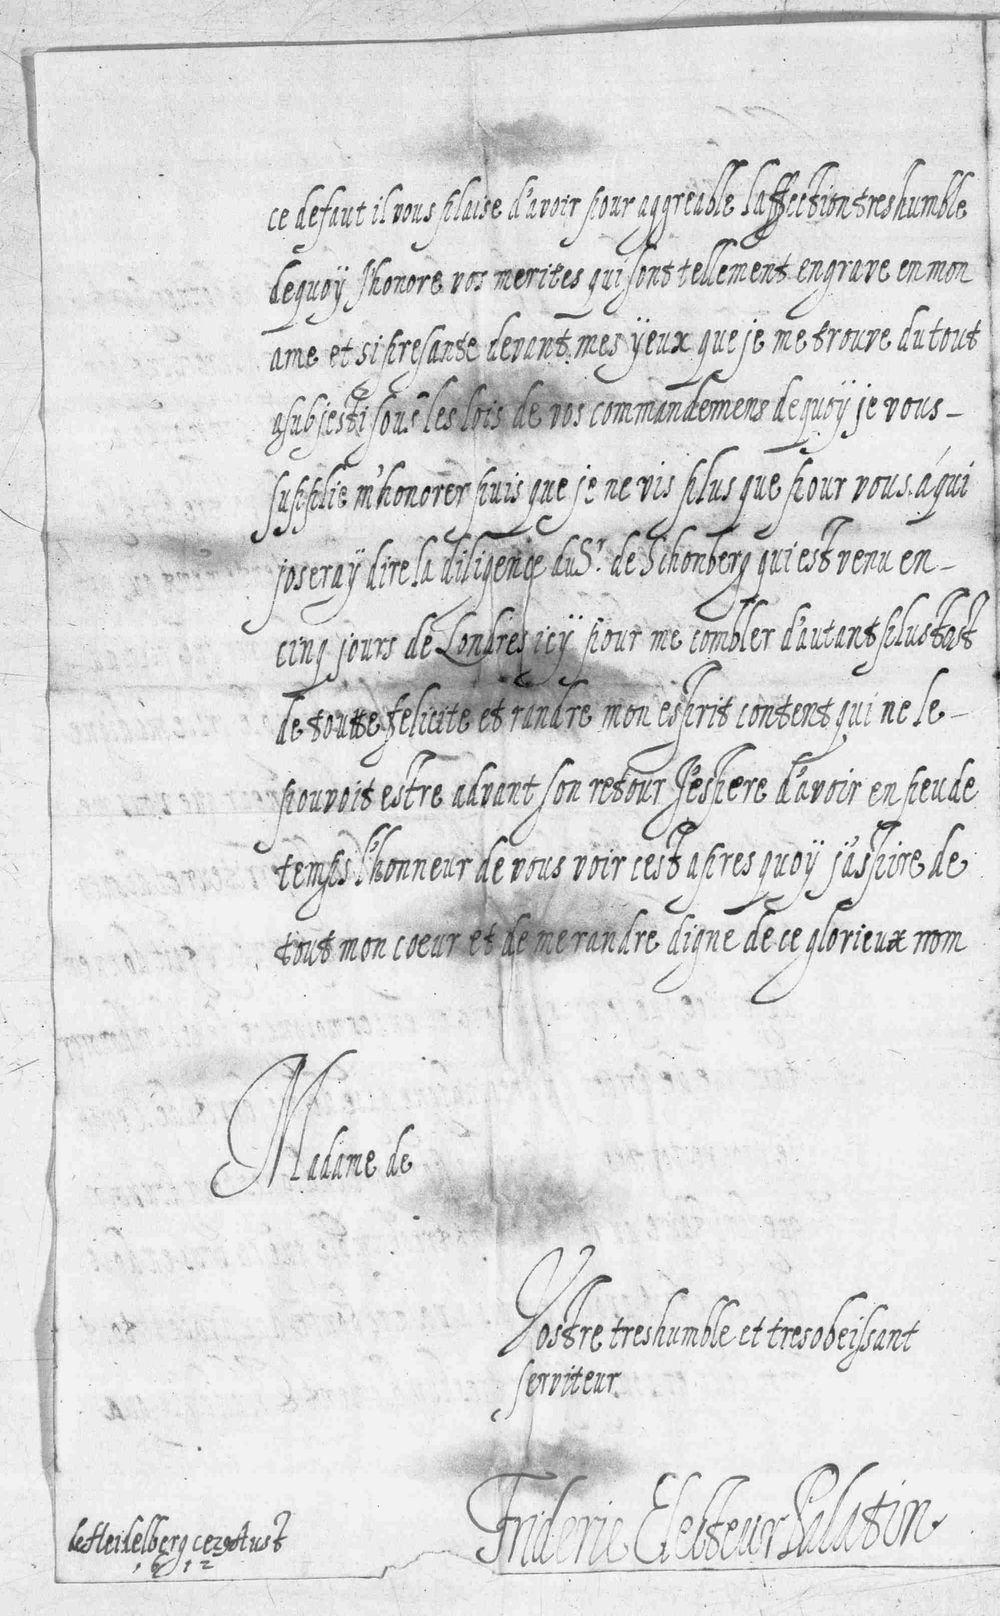 ce defaut il vous plaise d'avoir pour aggreable laffection treshumble
dequoÿ J'honore vos merites qui sont tellement engrave en mon
ame et si presante devant mes ÿeux que je me trouve du tout
asubjesti sous les lois de vos commandemens dequoÿ je vous –
supplie m'honorer puis que je ne vis plus que pour vous á qui
joseraÿ dire la diligence du Sr. de Schonberg qui est venu en –
cinq jours de Londres icÿ pour me combler d'autant plustost
de toutte felicite et randre mon esprit content qui ne le –
pouvoit estre advant son retour J'espere d'avoir en peu de
temps l'honneur de vous voir cest apres quoÿ j'aspire de
tout mon coeur et de me randre digne de ce glorieux nom
Madame de
Vostre treshumble et tresobeissant
serviteur
Frideric Electeur Palatin
de Heidelberg ce 29 Aust
1612